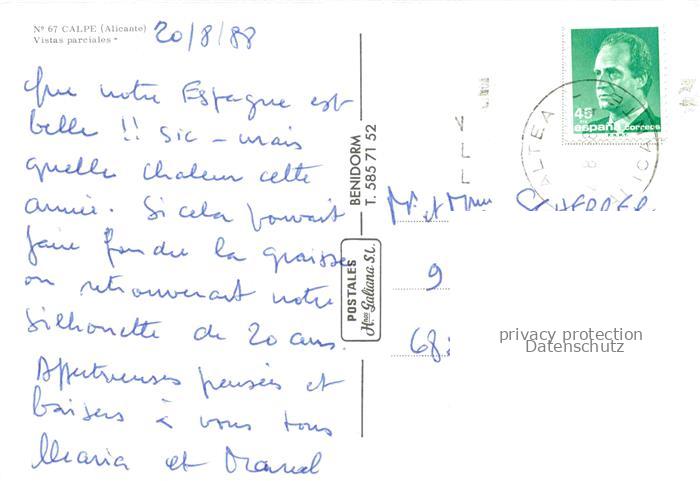 Nº 67 CALPE (Alicante)
Vistas parciales -
20/8/88
Que notre Espagne est
belle !! Sic - mais
quelle chaleur cette
année. Si cela pouvait
faire fondre la graisse
on retrouverait notre
silhouette de 20 ans.
Affectueuses pensées et
baisers à vous tous
Maria et Marcel
BENIDORM
T. 585 71 52
POSTALES
Hnos Galiana S.L.
45
españa correos
F.N.M.T.
ALTEA
Mr et Mme
9
68
privacy protection
Datenschutz